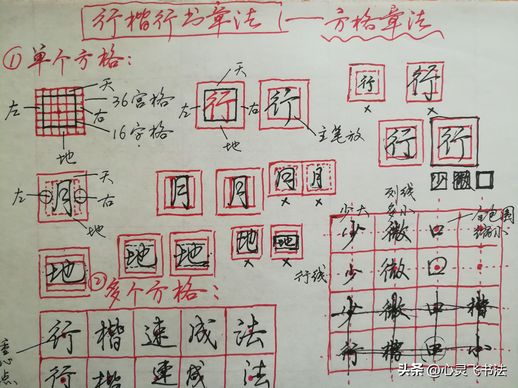 行楷行书章法——方格章法
①单个方格：
天
左 右
36宫格
16宫格
地
天
左 行 右
地
行
主笔放
行 ×
行 ×
行
行
少 微 口
天
左 月 右
地
月
月
月 ×
月 ×
地
地
地
地 ×
地 ×
②多个方格：
行 楷 速 成 法
重心点
行 楷 速 成 法
少大
列线
多小
全包围
行线
少 微 口
少 微 口
少 微 田 楷
行 楷 田 小
头条 @心灵飞书法